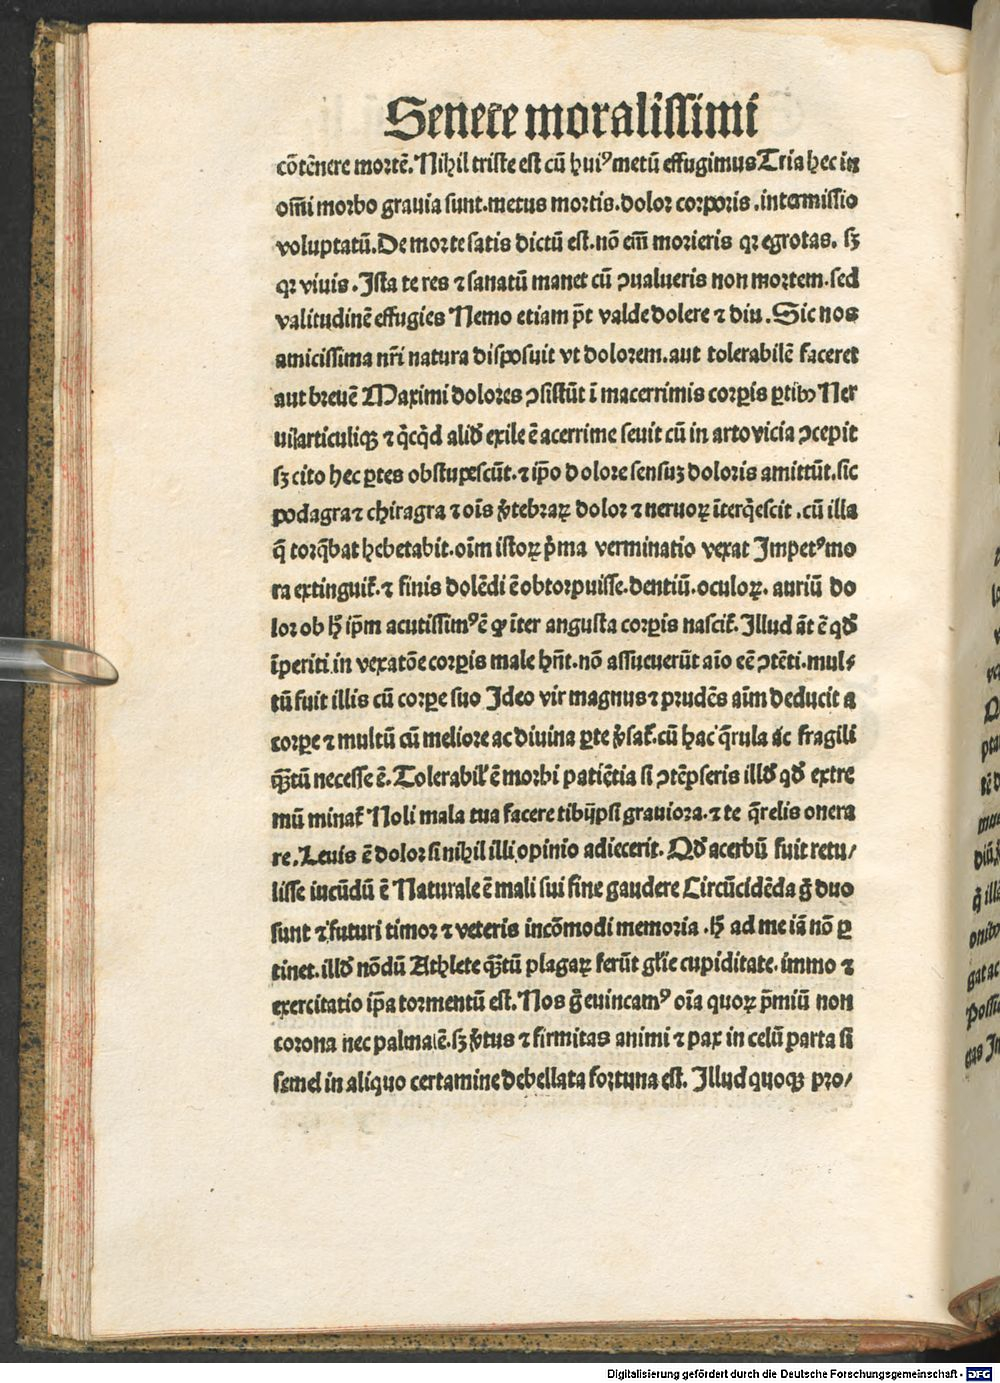 Senece moralissimi
cōtēnere mortē. Nihil triste est cū huiꝰ metū effugimus Tria hec in
om̄i morbo grauia sunt. metus mortis. dolor corporis. intermissio
voluptatū. De morte satis dictū est. nō em̄ morieris qꝛ egrotas. sꝫ
qꝛ viuis. Ista te res ⁊ sanatū manet cū ꝯualueris non mortem. sed
valitudinē effugies Nemo etiam p̄t valde dolere ⁊ diu. Sic nos
amicissima nr̄i natura disposuit vt dolorem. aut tolerabilē faceret
aut breuē Maximi dolores ꝯsistūt ī macerrimis corꝑis ꝑtibꝰ Ner
ui articuliqꝫ ⁊ q̇cq̇d aliđ exile ē acerrime seuit cū in arto vicia ꝯcepit
sꝫ cito hec ꝑtes obstupescūt. ⁊ ip̄o dolore sensuꝫ doloris amittūt. sic
podagra ⁊ chiragra ⁊ oīs v̓tebraꝝ dolor ⁊ neruoꝝ īterq̇escit. cū illa
q̄ torq̄bat hebetabit. oīm istoꝝ p̓ma verminatio vexat Impetꝰ mo
ra extinguit᷑. ⁊ finis dolēdi ē obtorpuisse. dentiū. oculoꝝ. auriū do
lor ob h̓ ip̄m acutissimꝰ ē ꝙ īter angusta corꝑis nascit᷑. Illud āt ē qđ
īperiti in vexatōe corꝑis male hn̄t. nō assueuerūt aīo eē ꝯtēti. mul⸗
tū fuit illis cū corꝑe suo Ideo vir magnus ⁊ prudēs aīm deducit a
corꝑe ⁊ multū cū meliore ac diuina ꝑte v̓sat᷑. cū hac q̄rula ac fragili
qꝫtū necesse ē. Tolerabil̓ ē morbi patiētia si ꝯtēpseris illđ qđ extre
mū minat᷑ Noli mala tua facere tibijpsi grauiora. ⁊ te q̄relis onera
re. Leuis ē dolor si nihil illi opinio adiecerit. Qđ acerbū fuit retu/
lisse iucūdū ē Naturale ē mali sui fine gaudere Circūcidēda ḡ duo
sunt ⁊ futuri timor ⁊ veteris incōmodi memoria. h̓ ad me iā nō ꝑ
tinet. illđ nōdū Athlete qꝫtū plagaꝝ ferūt gl̄ie cupiditate. immo ⁊
exercitatio ip̄a tormentū est. Nos ḡ euincamꝰ oīa quoꝝ p̄miū non
corona nec palma ē. sꝫ v̓tus ⁊ firmitas animi ⁊ pax in celū parta si
semel in aliquo certamine debellata fortuna est. Illud quoqꝫ pro/
Digitalisierung gefördert durch die Deutsche Forschungsgemeinschaft - DFG